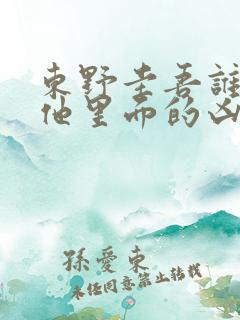 東野圭吾誰
他里面的凶
孫愛東
未經同意禁止轉載